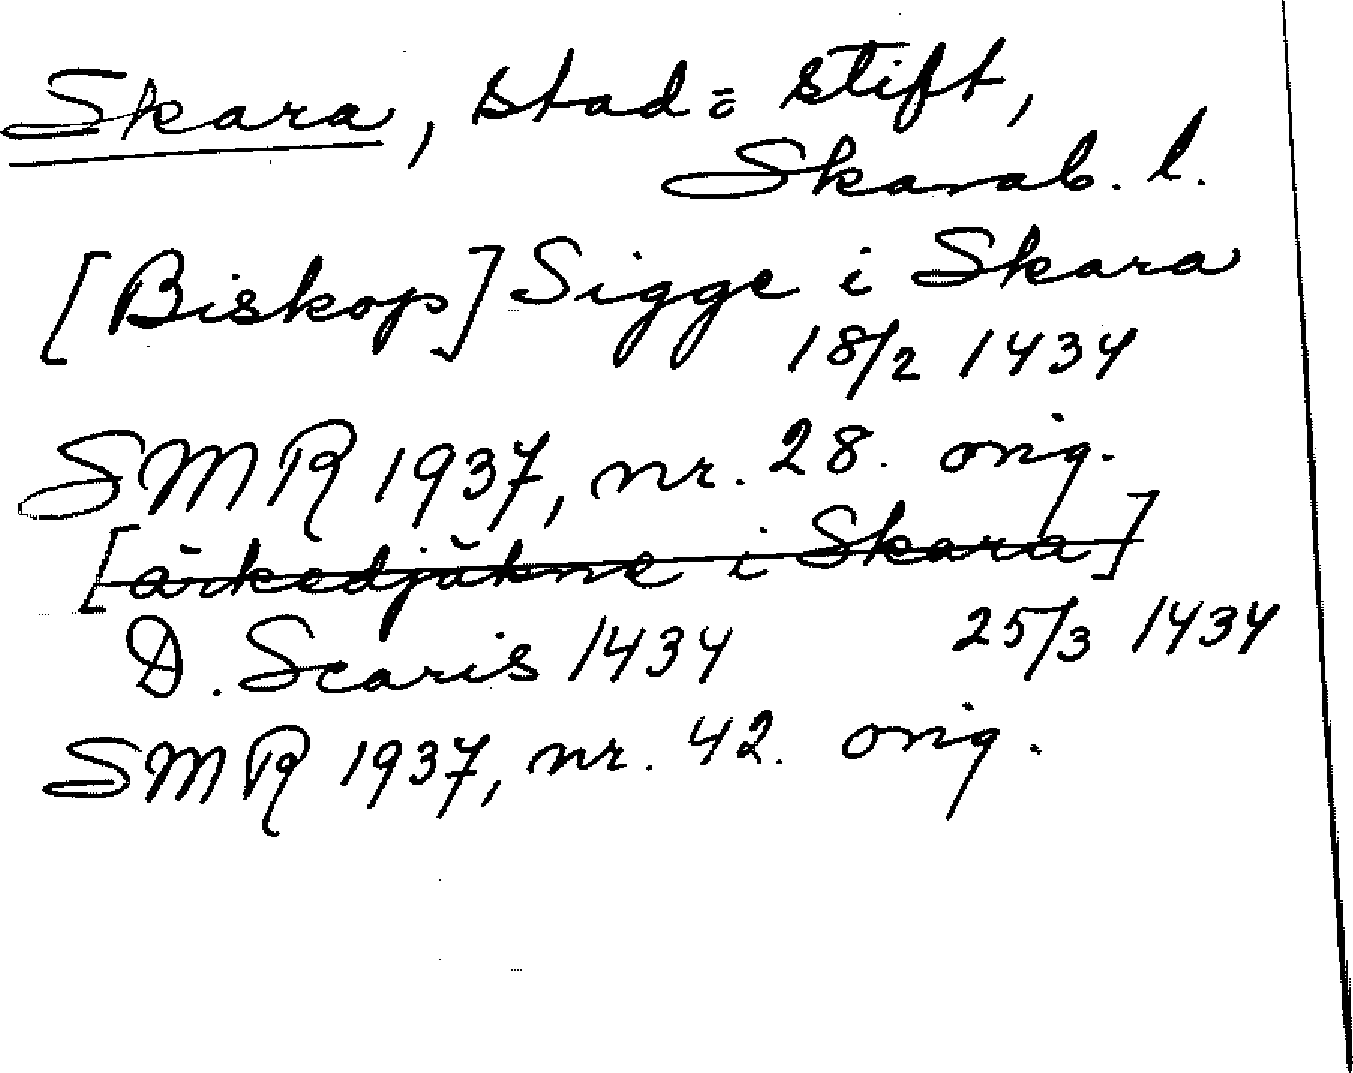 Skara, stad o stift,
Skarab. l.
[Biskop] Sigge i Skara
18/2 1434
SMR 1937, nr. 28. orig.
[ärkedjäkne i Skara]
D. Scaris 1434 25/3 1434
SMR 1937, nr. 42. orig.